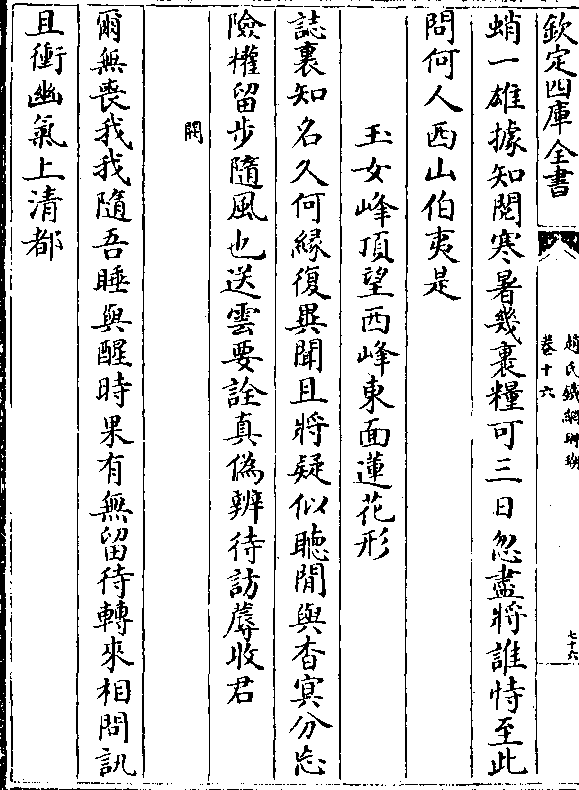 欽定四庫全書
趙氏鐵網珊瑚
卷十六
七十六
蛸一雄據知閱寒暑幾裹糧可三日忽盡將誰恃至此
問何人西山伯夷是
玉女峰頂望西峰東面蓮花形
誌裏知名久何緣復異聞且將疑似聽閒與杳冥分忘
險權留步隨風也送雲要詮真偽辨待訪蓐收君
闕
爾無喪我我隨吾睡與醒時果有無留待轉來相問訊
且衝幽氣上清都